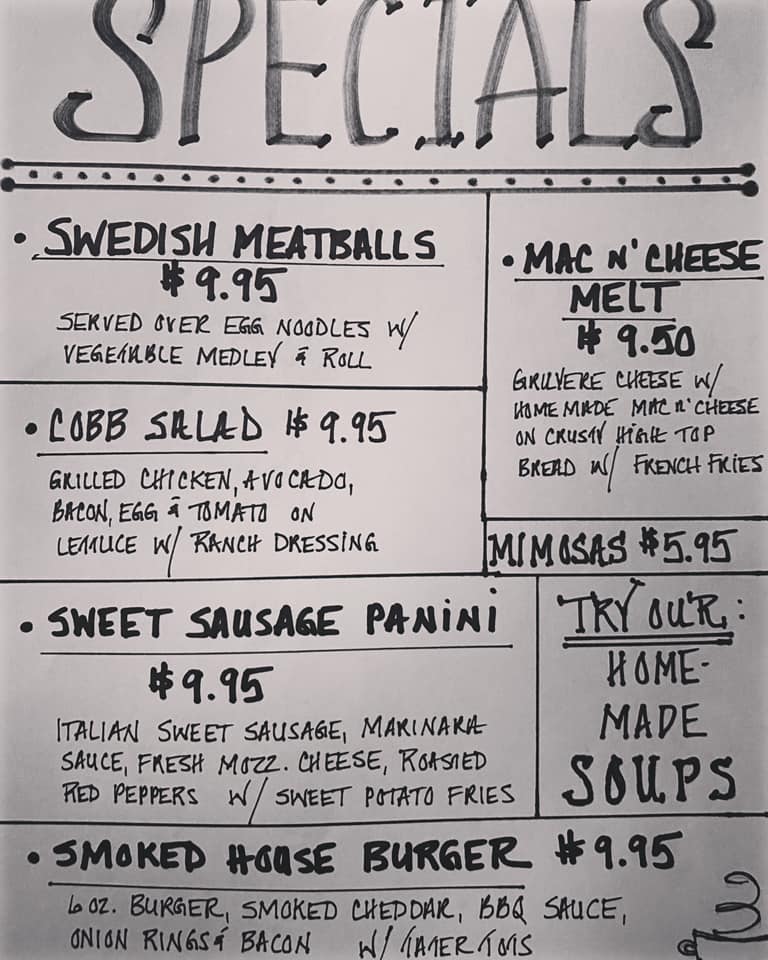 SPECIALS
• SWEDISH MEATBALLS
$9.95
SERVED OVER EGG NOODLES W/
VEGETABLE MEDLEY & ROLL
• MAC N' CHEESE
MELT
$9.50
GRUYERE CHEESE W/
HOMEMADE MAC N' CHEESE
ON CRUSTY HIGH TOP
BREAD W/ FRENCH FRIES
• COBB SALAD $9.95
GRILLED CHICKEN, AVOCADO,
BACON, EGG & TOMATO ON
LETTUCE W/ RANCH DRESSING
MIMOSAS $5.95
• SWEET SAUSAGE PANINI
$9.95
ITALIAN SWEET SAUSAGE, MARINARA
SAUCE, FRESH MOZZ. CHEESE, ROASTED
RED PEPPERS W/ SWEET POTATO FRIES
TRY OUR:
HOME-
MADE
SOUPS
• SMOKED HOUSE BURGER $9.95
6 OZ. BURGER, SMOKED CHEDDAR, BBQ SAUCE,
ONION RINGS & BACON W/ TATER TOTS